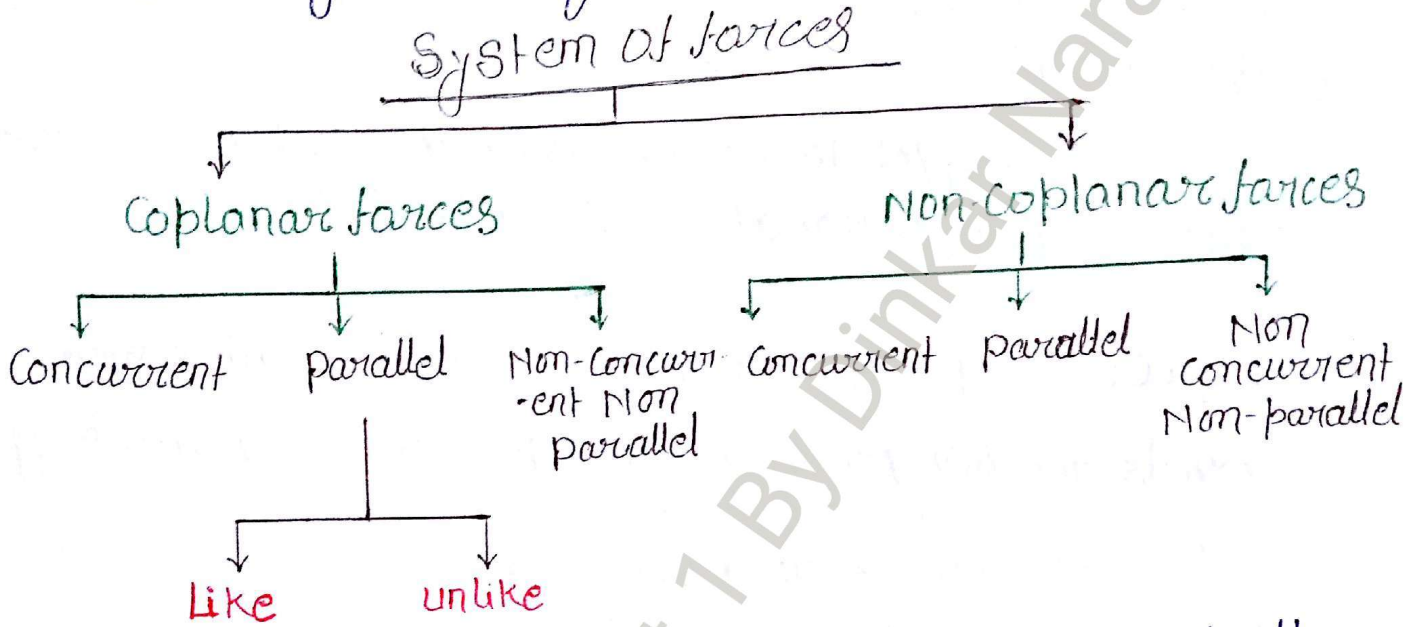 System of forces
Coplanar forces
Non-coplanar forces
Concurrent
parallel
Non-Concurr
-ent Non
parallel
Concurrent
parallel
Non
Concurrent
Non-parallel
Like
unlike
1 By Dinkar Nara